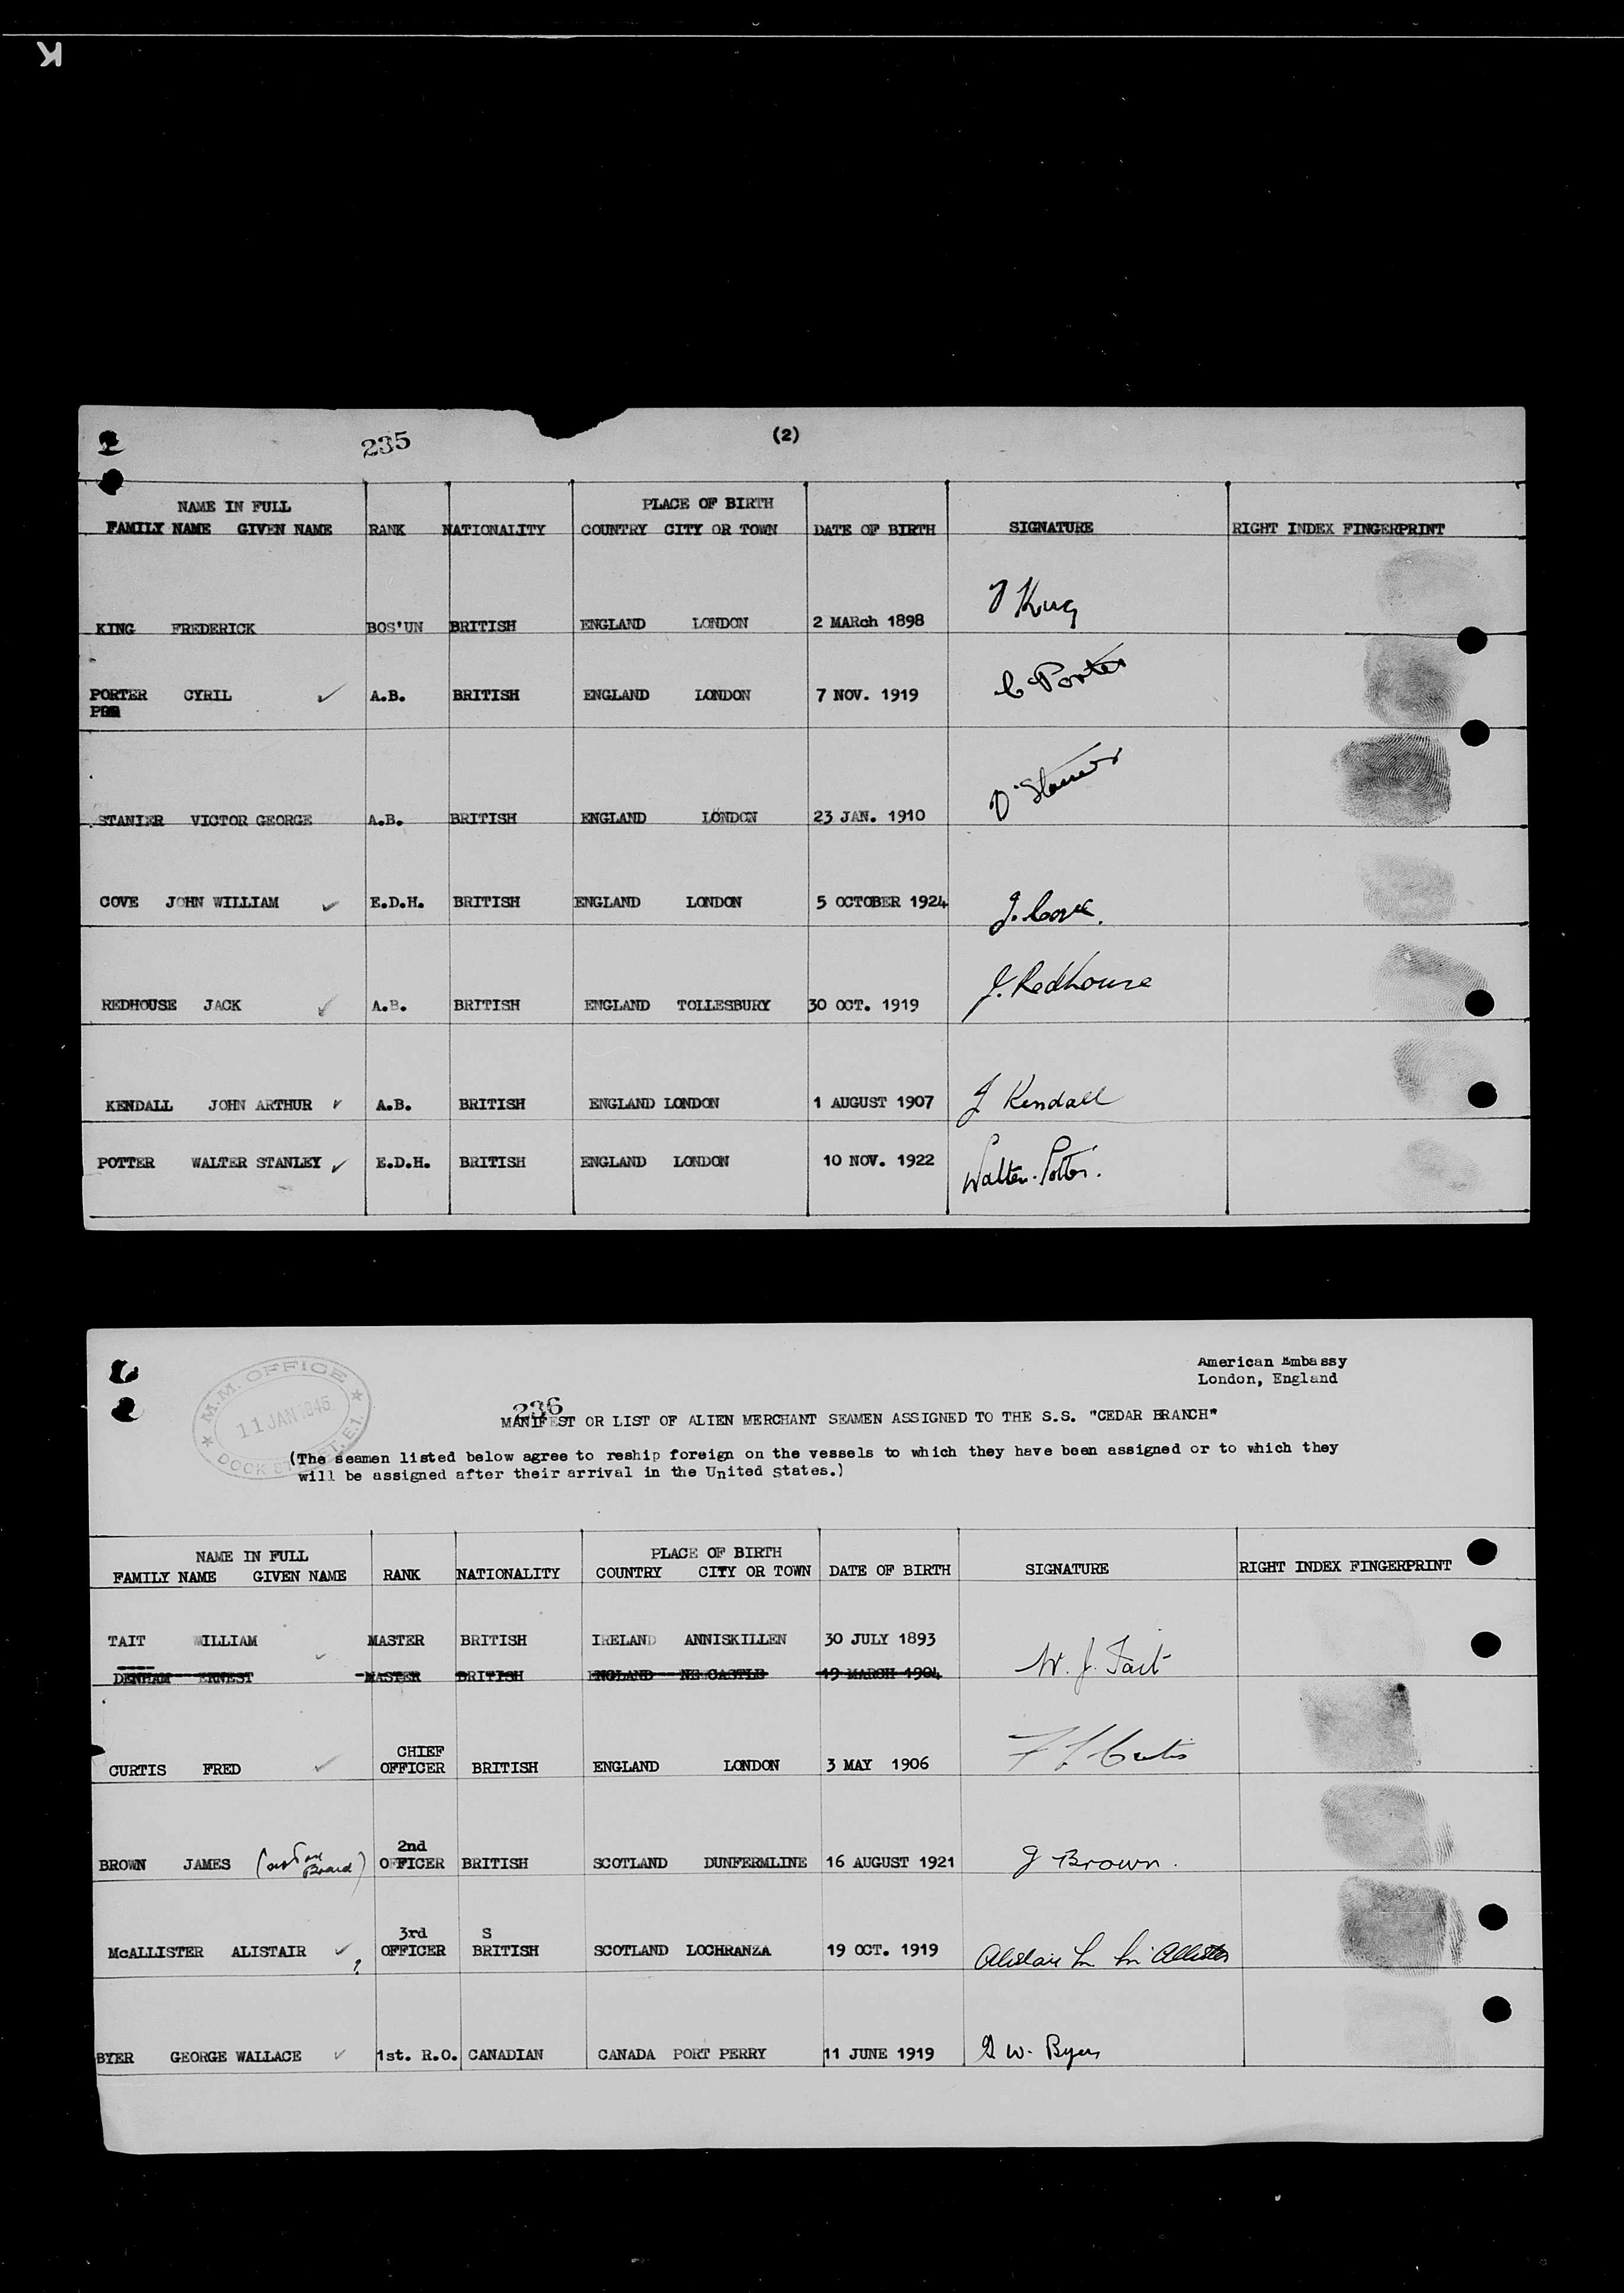 K
235 (2)
NAME IN FULL PLACE OF BIRTH
FAMILY NAME GIVEN NAME RANK NATIONALITY COUNTRY CITY OR TOWN DATE OF BIRTH SIGNATURE RIGHT INDEX FINGERPRINT
KING FREDERICK BOS'UN BRITISH ENGLAND LONDON 2 MARch 1898 F King
PORTER CYRIL ✓ A.B. BRITISH ENGLAND LONDON 7 NOV. 1919 C Porter
STANIER VICTOR GEORGE A.B. BRITISH ENGLAND LONDON 23 JAN. 1910 V. Stanier
COVE JOHN WILLIAM ✓ E.D.H. BRITISH ENGLAND LONDON 5 OCTOBER 1924 J. Cove.
REDHOUSE JACK ✓ A.B. BRITISH ENGLAND TOLLESBURY 30 OCT. 1919 J. Redhouse
KENDALL JOHN ARTHUR ✓ A.B. BRITISH ENGLAND LONDON 1 AUGUST 1907 J Kendall
POTTER WALTER STANLEY ✓ E.D.H. BRITISH ENGLAND LONDON 10 NOV. 1922 Walter. Potter.
American Embassy
London, England
M.M. OFFICE
11 JAN 1945
DOCK STREET. E.1.
236
MANIFEST OR LIST OF ALIEN MERCHANT SEAMEN ASSIGNED TO THE S.S. "CEDAR BRANCH"
(The seamen listed below agree to reship foreign on the vessels to which they have been assigned or to which they
will be assigned after their arrival in the United States.)
NAME IN FULL PLACE OF BIRTH
FAMILY NAME GIVEN NAME RANK NATIONALITY COUNTRY CITY OR TOWN DATE OF BIRTH SIGNATURE RIGHT INDEX FINGERPRINT
TAIT WILLIAM ✓ MASTER BRITISH IRELAND ANNISKILLEN 30 JULY 1893 W. J. Tait
DENHAM ERNEST MASTER BRITISH ENGLAND NEWCASTLE 19 MARCH 1904
CHIEF
CURTIS FRED ✓ OFFICER BRITISH ENGLAND LONDON 3 MAY 1906 F J Curtis
2nd
BROWN JAMES (not on Board) OFFICER BRITISH SCOTLAND DUNFERMLINE 16 AUGUST 1921 J Brown.
3rd S
McALLISTER ALISTAIR ✓ ? OFFICER BRITISH SCOTLAND LOCHRANZA 19 OCT. 1919 Alistair McAllister
BYER GEORGE WALLACE ✓ 1st. R.O. CANADIAN CANADA PORT PERRY 11 JUNE 1919 G W. Byer